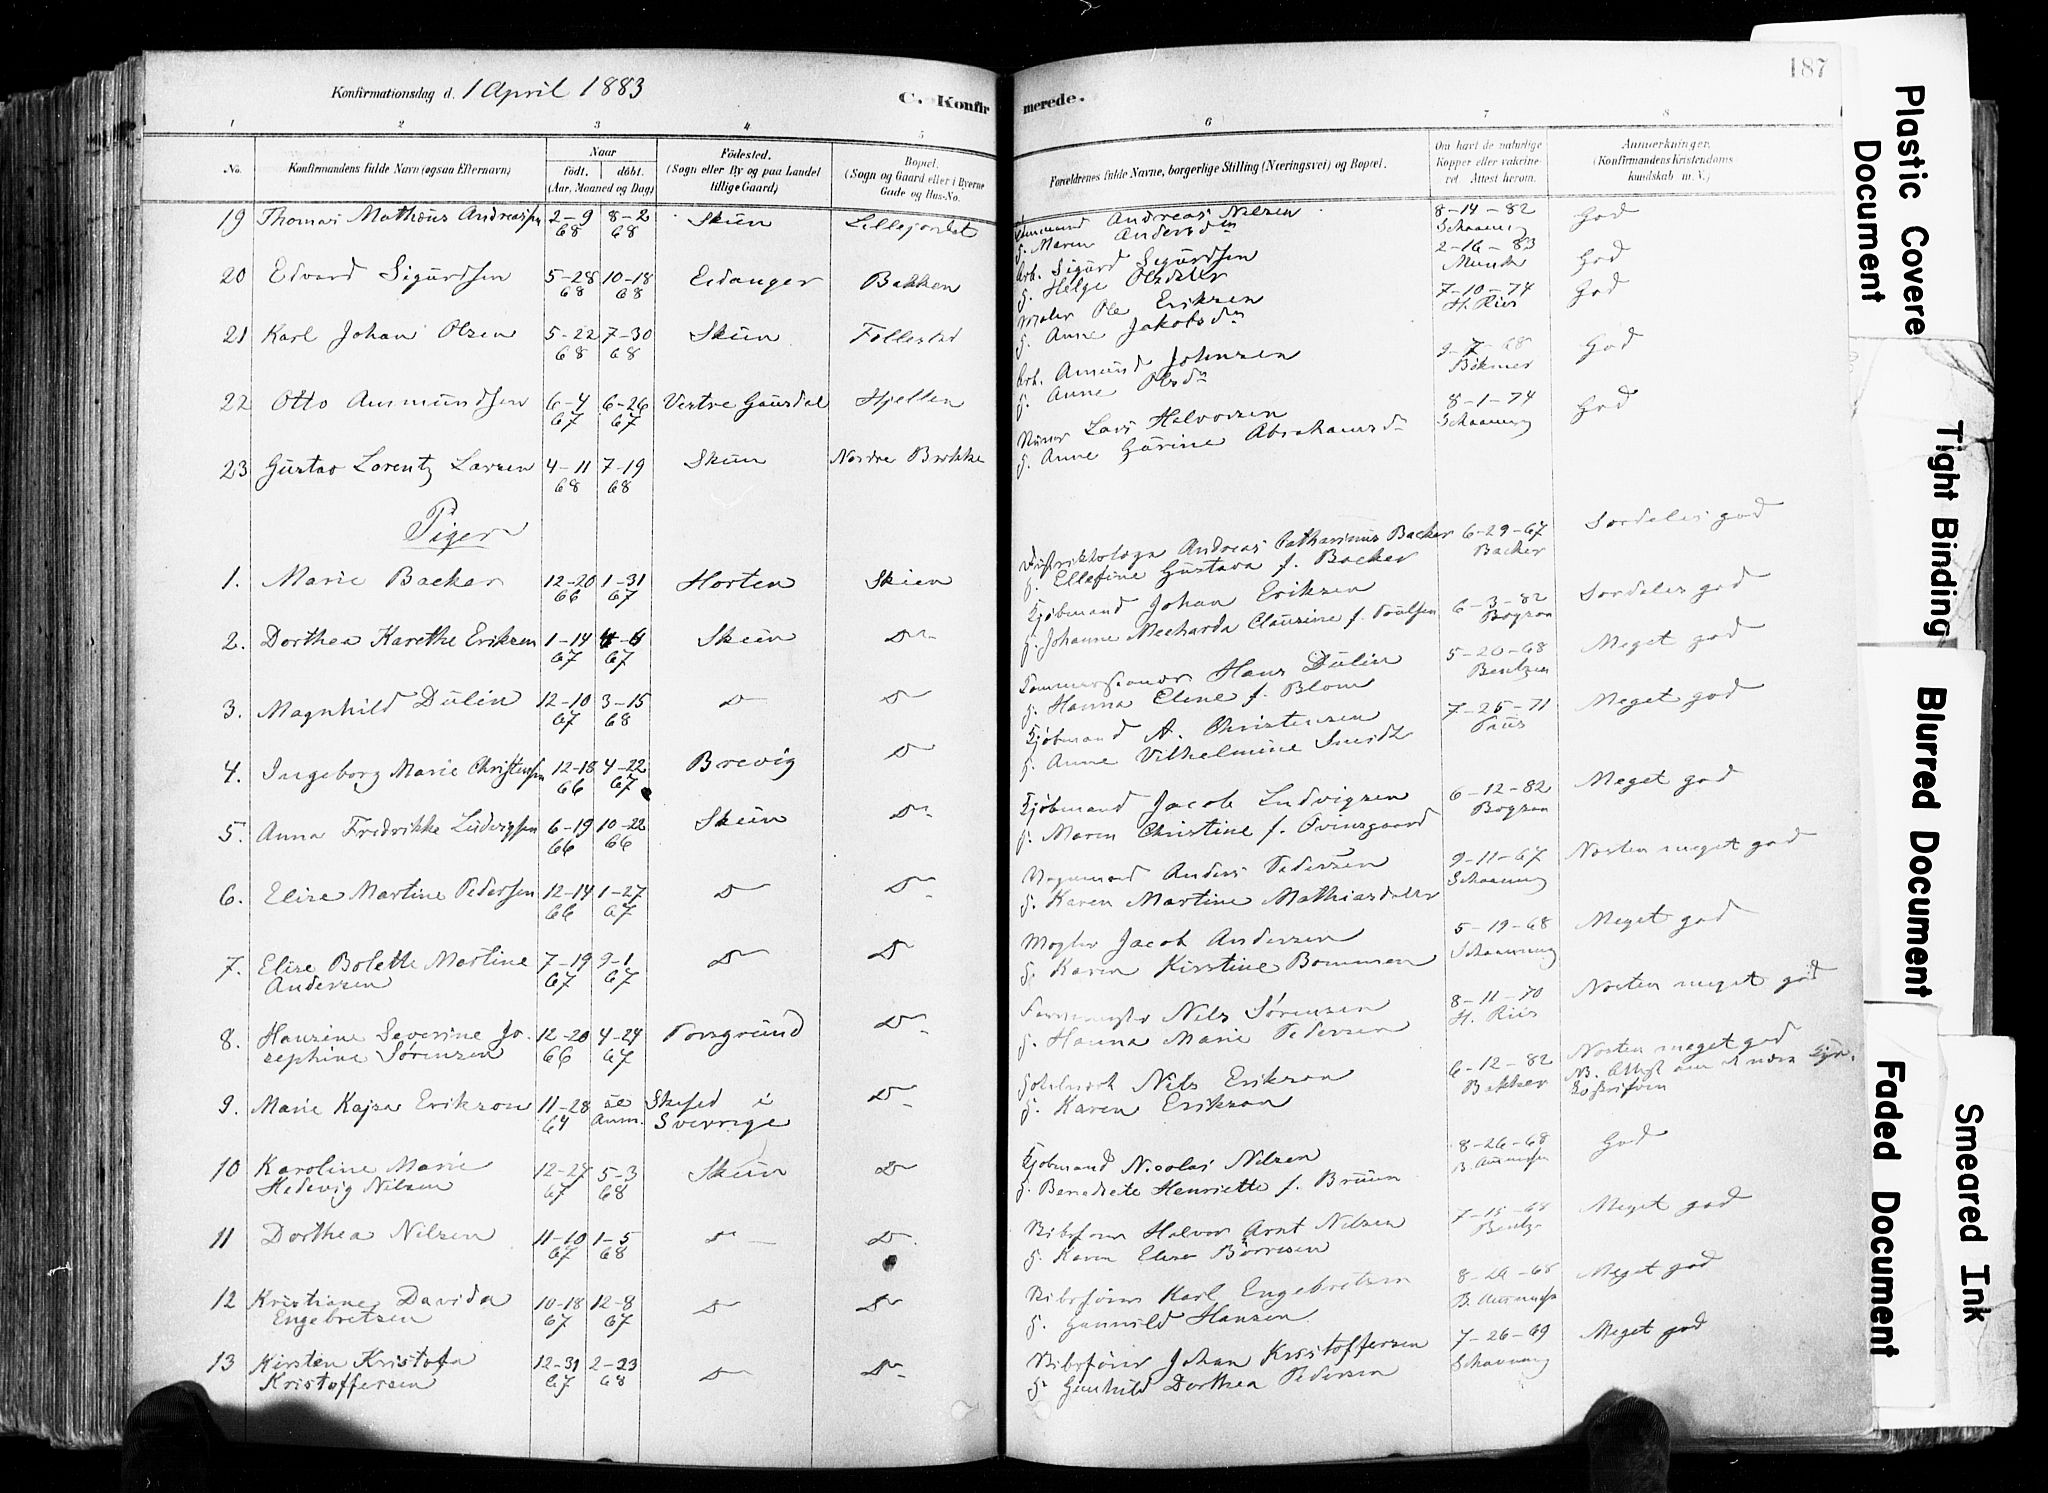 187
Konfirmationsdag d. 1 April 1883
C. Konfirmerede.
1 2 3 4 5 6 7 8
No.
Konfirmandens fulde Navn (ogsaa Efternavn)
Naar
födt. döbt.
(Aar, Maaned og Dag)
Födested.
(Sogn eller By og paa Landet
tillige Gaard)
Bopæl.
(Sogn og Gaard eller i Byerne
Gade og Hus-No.
Forældrenes fulde Navne, borgerlige Stilling (Næringsvei) og Bopæl.
Om havt de naturlige
Kopper eller vakcine-
ret Attest herom.
Anmærkninger,
(Konfirmandens Kristendoms-
kundskab m. V.)
19 Thomas Mathæus Andreassen 2-9 68 8-2 68 Skien
Andreas Nilsen 8-14-82 God
g. Maren Andersdtr Schaanng
20 Edvard Sigurdsen 5-28 68 10-18 68 Eidanger Bakken
Arb. Sigurd Sigurdsen 2-16-83 God
g. Helge Olsdatter Munch
21 Karl Johan Olsen 5-22 68 7-30 68 Skien Follestad
Maler Ole Eriksen 7-10-74 God
g. Anne Jakobsdn H. Riis
22 Otto Ammundsen 6-4 67 6-26 67 Vestre Gausdal Hjellen
Arb. Amund Johnsen 9-7-68 God
g. Anne Olsdn
23 Gustav Lorentz Larsen 4-11 68 7-19 68 Skien Nordre Brekke
Lars Halvorsen 8-1-74 God
g. Anne Gurine Abrahamsdn Schaanng
Piger
1. Marie Backer 12-20 66 1-31 67 Horten Skien
Distriktslæge Andreas Catharinus Backer 6-29-67 Særdeles god
g. Ellefine Gustava f. Backer Backer
2. Dorthea Karethe Eriksen 1-14 67 4-6 67 Skien Do
Kjøbmand Johan Eriksen 6-3-82 Særdeles god
g. Johanne Mecharda Clausine f. Poulsen Bogson
3. Magnhild Dulin 12-10 67 3-15 68 Do Do
Hans Dulin 5-20-68 Meget god
g. Hanna Eline f. Blom Bentzen
4. Ingeborg Marie Christensen 12-18 66 4-22 67 Brevig Do
Kjøbmand A. Christensen 7-25-71 Meget god
g. Anne Vilhelmine Smidt Paus
5. Anna Fredrikke Ludvigsen 6-19 66 10-22 66 Skien Do
Kjøbmand Jacob Ludvigsen 6-12-82 Meget god
g. Maren Christine f. Prinsgaard Bogson
6. Elise Martine Pedersen 12-14 66 1-27 67 Do Do
Vognmand Anders Pedersen 9-11-67 Næsten meget god
g. Karen Martine Mathiasdatter Schaanng
7. Elise Bolette Martine 7-19 67 9-1 67 Do Do
Andersen
Mægler Jacob Andersen 5-19-68 Meget god
g. Karen Kirstine Bommen Schaanning
8. Hansine Severine Jo- 12-20 66 4-24 67 Porsgrund Do
sephine Sørensen
Nils Sørensen 8-11-70 Næsten meget god
g. Hanna Marie Pedersen H. Riis
9. Marie Kajsa Erikson 11-28 64 se Anm. i Sverrige Do
Nils Erikson 6-12-82 Næsten meget god
g. Karen Erikson Bakker NB. Attest om
10 Karoline Marie 12-27 67 5-3 68 Skien Do
Hedevig Nilsen
Kjøbmand Nicolai Nilsen 8-26-68 God
g. Benedicte Henriette f. Bruun
11 Dorthea Nilsen 11-10 67 1-5 68 Do Do
Skibsfører Halvor Arnt Nilsen 7-15-68 Meget god
g. Karen Elise Børresen
12 Kristiane Davida 10-18 67 12-8 67 Do Do
Engebretsen
Skibsfører Karl Engebretsen Meget god
g. Gunnild Hansen
13 Kirsten Kristofa 12-31 67 2-23 68 Do Do
Kristoffersen
Skibsfører Johan Kristoffersen 7-26-69 Meget god
g. Gunhild Dorthea Pedersen Schaanng
Plastic Covere
Document
Tight Binding
Blurred Document
Faded Document
Smeared Ink